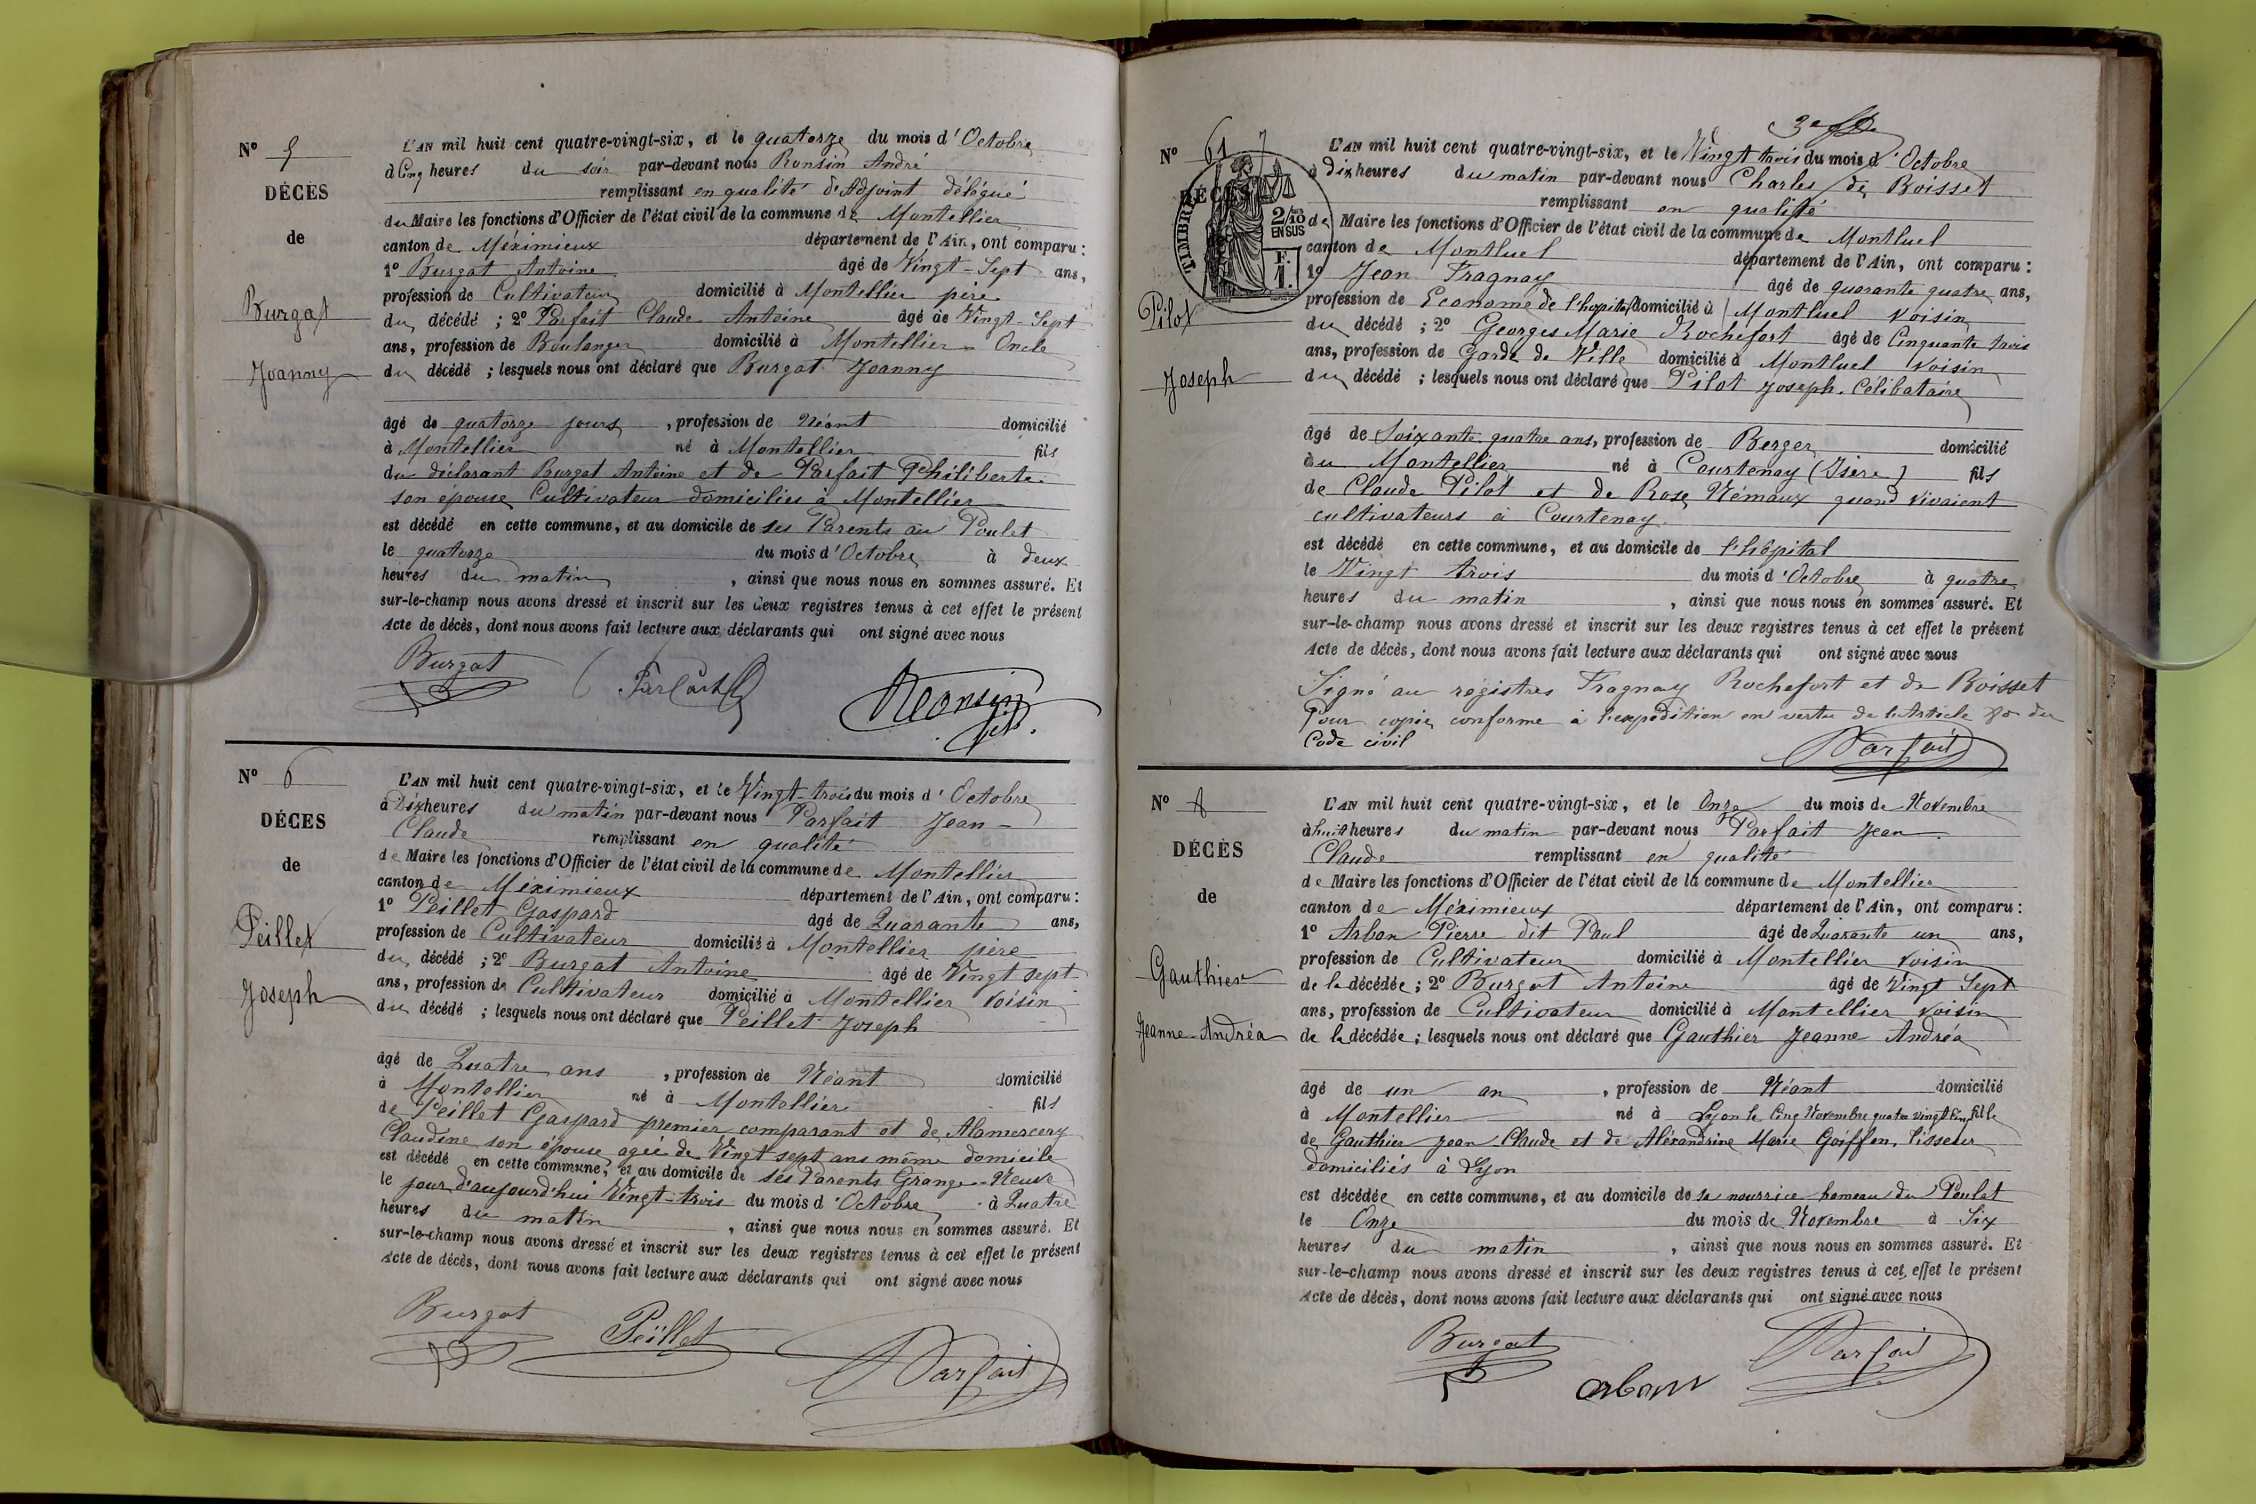 N° 5
DÉCÈS
de
Burgat
Joanny
L'AN mil huit cent quatre-vingt-six, et le quatorze du mois d'Octobre
à Cinq heures du soir par-devant nous Ronsin André
remplissant en qualité d'Adjoint délégué
du Maire les fonctions d'Officier de l'état civil de la commune de Montellier
canton de Méximieux département de l'Ain, ont comparu :
1° Burgat Antoine âgé de Vingt-Sept ans,
profession de Cultivateur domicilié à Montellier père
du décédé ; 2° Parfait Claude Antoine âgé de Vingt-Sept
ans, profession de Boulanger domicilié à Montellier - Oncle
du décédé ; lesquels nous ont déclaré que Burgat Joanny
âgé de quatorze jours, profession de Néant domicilié
à Montellier né à Montellier fils
du déclarant Burgat Antoine et de Parfait Philiberte
son épouse Cultivateur domiciliés à Montellier
est décédé en cette commune, et au domicile de ses Parents au Poulet
le quatorze du mois d'Octobre à deux
heures du matin, ainsi que nous nous en sommes assuré. Et
sur-le-champ nous avons dressé et inscrit sur les deux registres tenus à cet effet le présent
Acte de décès, dont nous avons fait lecture aux déclarants qui ont signé avec nous
Burgat Parfait Ronsin
N° 6
DÉCÈS
de
Peillet
Joseph
L'AN mil huit cent quatre-vingt-six, et le Vingt-trois du mois d'Octobre
à Dix heures du matin par-devant nous Parfait Jean-
Claude remplissant en qualité
de Maire les fonctions d'Officier de l'état civil de la commune de Montellier
canton de Méximieux département de l'Ain, ont comparu :
1° Peillet Gaspard âgé de Quarante ans,
profession de Cultivateur domicilié à Montellier père
du décédé ; 2° Burgat Antoine âgé de Vingt sept
ans, profession de Cultivateur domicilié à Montellier voisin
du décédé ; lesquels nous ont déclaré que Peillet Joseph
âgé de Quatre ans, profession de Néant domicilié
à Montellier né à Montellier fils
de Peillet Gaspard premier comparant et de Alamercery
Claudine son épouse agée de Vingt sept ans même domicile
est décédé en cette commune, et au domicile de ses Parents Grange-Neuve
le jour d'aujourd'hui Vingt-trois du mois d'Octobre à Quatre
heures du matin, ainsi que nous nous en sommes assuré. Et
sur-le-champ nous avons dressé et inscrit sur les deux registres tenus à cet effet le présent
Acte de décès, dont nous avons fait lecture aux déclarants qui ont signé avec nous
Burgat Peillet Parfait
N° 61 7
DÉCÈS
TIMBRE
2/10 EN SUS
F. 1.
Pilot
Joseph
L'AN mil huit cent quatre-vingt-six, et le Vingt trois du mois d'Octobre
à Dix heures du matin par-devant nous Charles de Boisset
remplissant en qualité
de Maire les fonctions d'Officier de l'état civil de la commune de Montluel
canton de Montluel département de l'Ain, ont comparu :
1° Jean Fragnay âgé de quarante quatre ans,
profession de Econome de l'hopital domicilié à Montluel voisin
du décédé ; 2° Georges Marie Rochefort âgé de Cinquante trois
ans, profession de Garde de Ville domicilié à Montluel voisin
du décédé ; lesquels nous ont déclaré que Pilot Joseph. Célibataire
âgé de Soixante quatre ans, profession de Berger domicilié
au Montellier né à Courtenay (Isère) fils
de Claude Pilot et de Rose Némoux quand vivaient
cultivateurs à Courtenay
est décédé en cette commune, et au domicile de l'hôpital
le Vingt trois du mois d'Octobre à quatre
heures du matin, ainsi que nous nous en sommes assuré. Et
sur-le-champ nous avons dressé et inscrit sur les deux registres tenus à cet effet le présent
Acte de décès, dont nous avons fait lecture aux déclarants qui ont signé avec nous
Signé au registres Fragnay Rochefort et de Boisset
Pour copie conforme à l'expédition en vertu de l'Article 80 du
Code civil
Parfait
N° 8
DÉCÈS
de
Gauthier
Jeanne-Andréa
L'AN mil huit cent quatre-vingt-six, et le Onze du mois de Novembre
à huit heures du matin par-devant nous Parfait Jean
Claude remplissant en qualité
de Maire les fonctions d'Officier de l'état civil de la commune de Montellier
canton de Méximieux département de l'Ain, ont comparu :
1° Arban Pierre dit Paul âgé de Quarante un ans,
profession de Cultivateur domicilié à Montellier voisin
de la décédée ; 2° Burgat Antoine âgé de Vingt Sept
ans, profession de Cultivateur domicilié à Montellier voisin
de la décédée ; lesquels nous ont déclaré que Gauthier Jeanne Andréa
âgé de un an, profession de Néant domicilié
à Montellier né à Lyon le Cinq Novembre quatre vingt Cinq fille
de Gauthier Jean Claude et de Aléxandrine Marie Goiffon, tisseur
domiciliés à Lyon
est décédée en cette commune, et au domicile de sa nourrice hameau du Poulet
le Onze du mois de Novembre à Six
heures du matin, ainsi que nous nous en sommes assuré. Et
sur-le-champ nous avons dressé et inscrit sur les deux registres tenus à cet effet le présent
Acte de décès, dont nous avons fait lecture aux déclarants qui ont signé avec nous
Burgat Arban Parfait